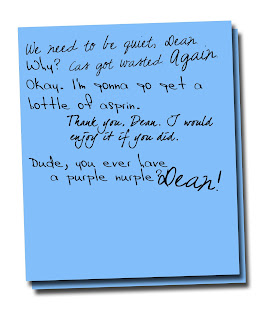 We need to be quiet, Dean
Why? Cas got wasted Again
Okay. I'm gonna go get a
bottle of asprin.
Thank you. Dean. I would
enjoy it if you did.
Dude, you ever have
a purple nurple? Dean!